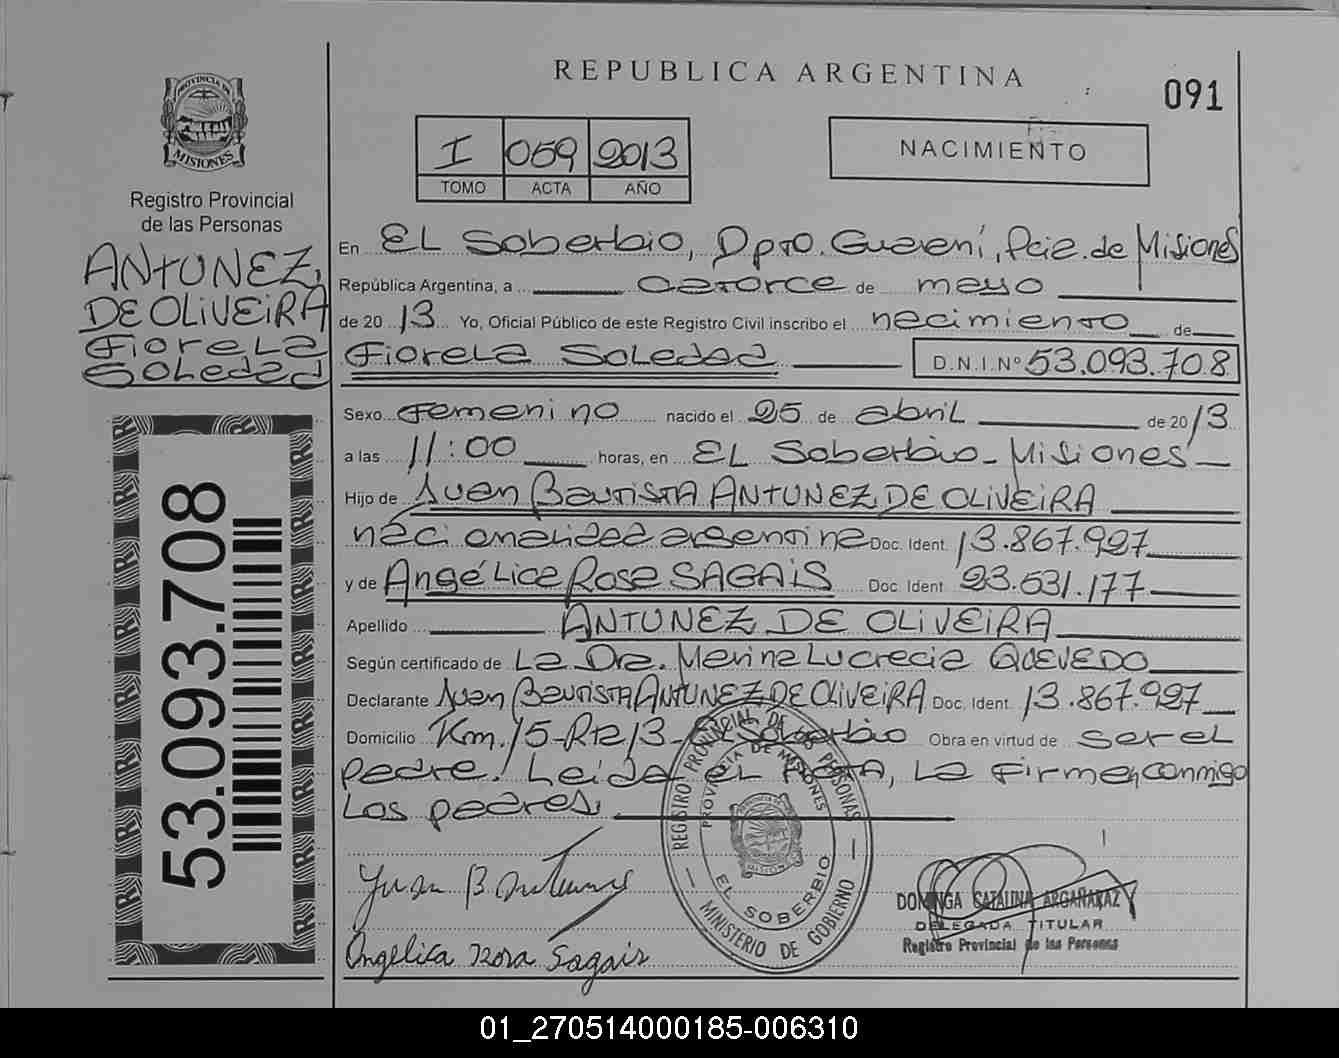 REPUBLICA ARGENTINA
091
PROVINCIA DE
MISIONES
Registro Provincial
de las Personas
ANTUNEZ,
DE OLIVEIRA
Fiorela
Soledad
53.093.708
I 059 2013
TOMO ACTA AÑO
NACIMIENTO
En El Soberbio, Dpto. Guaraní, Pcia. de Misiones
República Argentina, a catorce de mayo
de 20 13 Yo, Oficial Público de este Registro Civil inscribo el nacimiento de
Fiorela Soledad D.N.I.Nº 53.093.708
Sexo Femenino nacido el 25 de abril de 2013
a las 11:00 horas, en El Soberbio - Misiones
Hijo de Juan Bautista ANTUNEZ DE OLIVEIRA
nacionalidad argentina Doc. Ident. 13.867.927
y de Angélica Rosa SAGAIS Doc. Ident. 23.531.177
Apellido ANTUNEZ DE OLIVEIRA
Según certificado de La Dra. Marina Lucrecia QUEVEDO
Declarante Juan Bautista ANTUNEZ DE OLIVEIRA Doc. Ident. 13.867.927
Domicilio Km. 15-Rta 13-El Soberbio Obra en virtud de ser el
padre. Leída el Acta, la firman conmigo
los padres.
Juan B Antunez
Angelica Rosa Sagais
REGISTRO PROVINCIAL DE LAS PERSONAS
PROVINCIA DE MISIONES
EL SOBERBIO
MINISTERIO DE GOBIERNO
DOMINGA CATALINA ARGAÑARAZ
DELEGADA TITULAR
Registro Provincial de las Personas
01_270514000185-006310